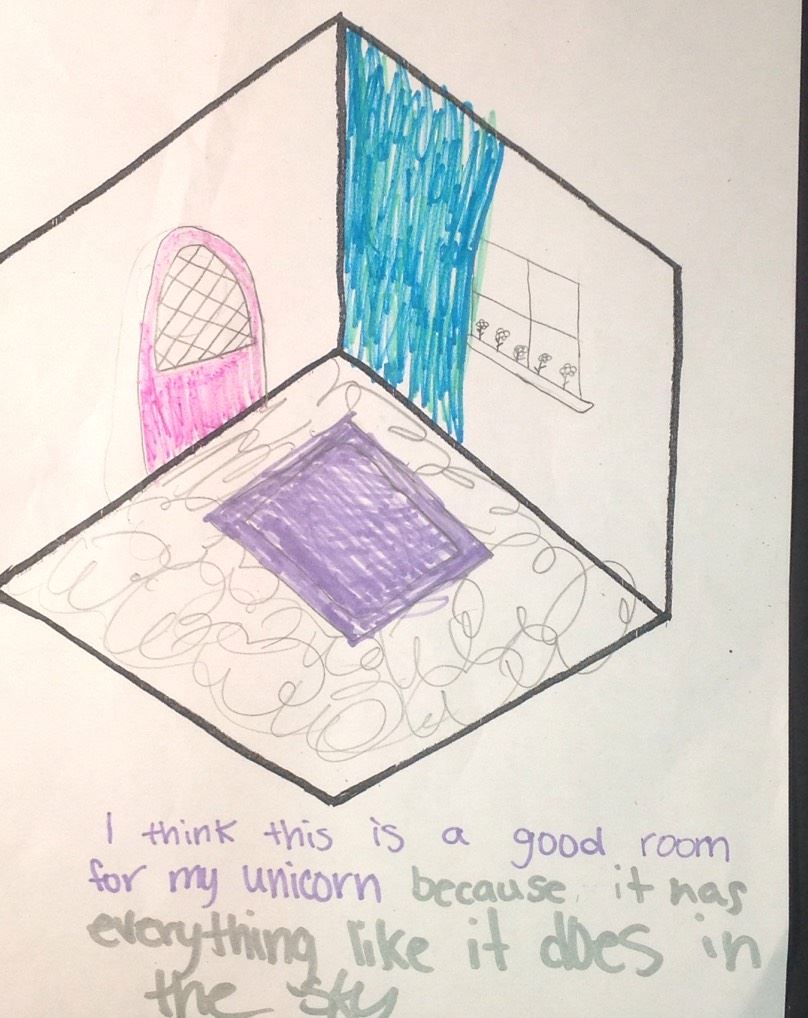 I think this is a good room
for my unicorn because it has
everything like it does in
the sky